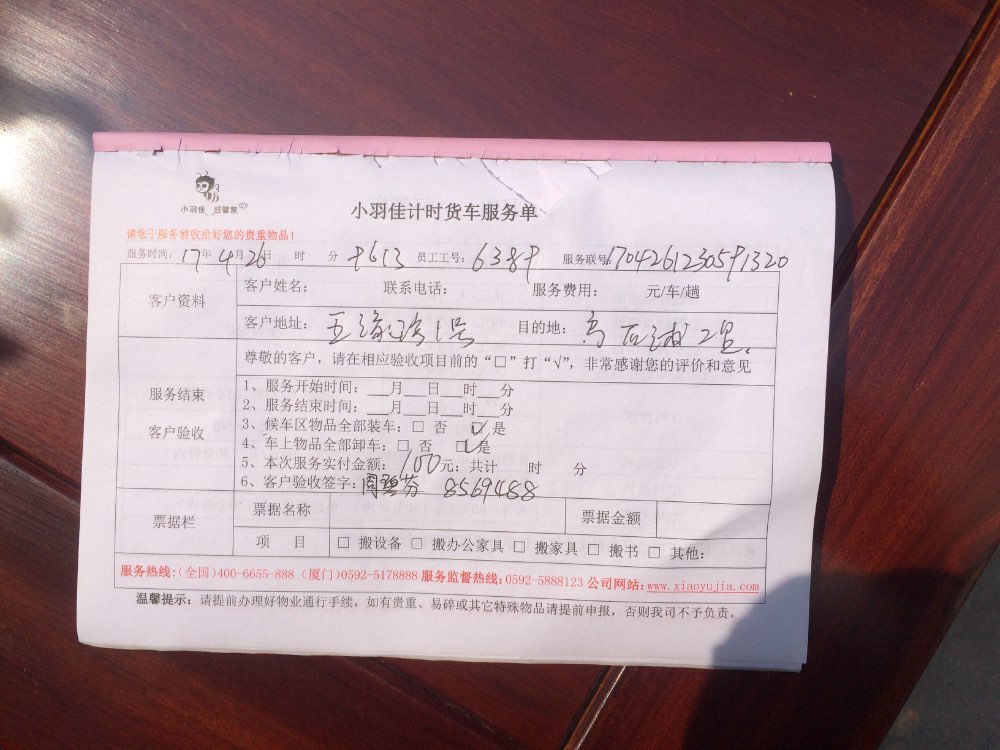 小羽佳 好管家
小羽佳计时货车服务单
请您于服务前收拾好您的贵重物品!
服务时间: 17年4月26日 时 分 9613 员工工号: 6389 服务联号: 1704261230591320
客户资料 客户姓名: 联系电话: 服务费用: 元/车/趟
客户地址: 1号 目的地: 高
尊敬的客户，请在相应验收项目前的“□”打“√”，非常感谢您的评价和意见
服务结束
客户验收
1、服务开始时间: __月__日__时__分
2、服务结束时间: __月__日__时__分
3、候车区物品全部装车: □ 否 ☑是
4、车上物品全部卸车: □ 否 ☑是
5、本次服务实付金额: 100元; 共计 时 分
6、客户验收签字: 周碧芬 8569488
票据栏 票据名称 票据金额
项 目 □ 搬设备 □ 搬办公家具 □ 搬家具 □ 搬书 □ 其他:
服务热线:(全国)400-6655-888 (厦门)0592-5178888 服务监督热线:0592-5888123 公司网站:www.xiaoyujia.com
温馨提示: 请提前办理好物业通行手续，如有贵重、易碎或其它特殊物品请提前申报，否则我司不予负责。